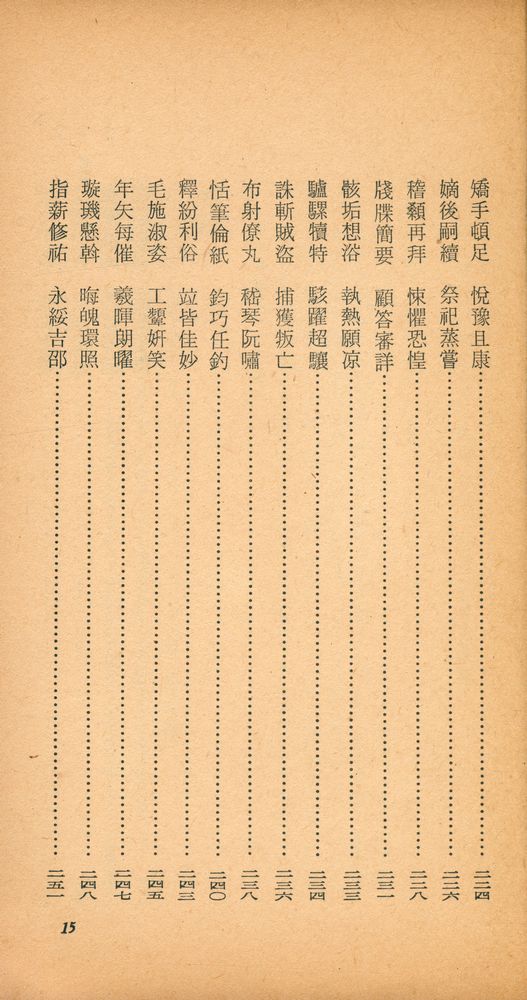 矯手頓足 悅豫且康……二二四
嫡後嗣續 祭祀蒸嘗……二二六
稽顙再拜 悚懼恐惶……二二八
牋牒簡要 顧答審詳……二三一
骸垢想浴 執熱願凉……二三三
驢騾犢特 駭躍超驤……二三四
誅斬賊盜 捕獲叛亡……二三六
布射僚丸 嵇琴阮嘯……二三八
恬筆倫紙 鈞巧任釣……二四〇
釋紛利俗 竝皆佳妙……二四三
毛施淑姿 工顰姸笑……二四五
年矢每催 羲暉朗曜……二四七
璇璣懸斡 晦魄環照……二四八
指薪修祐 永綏吉邵……二五一
15